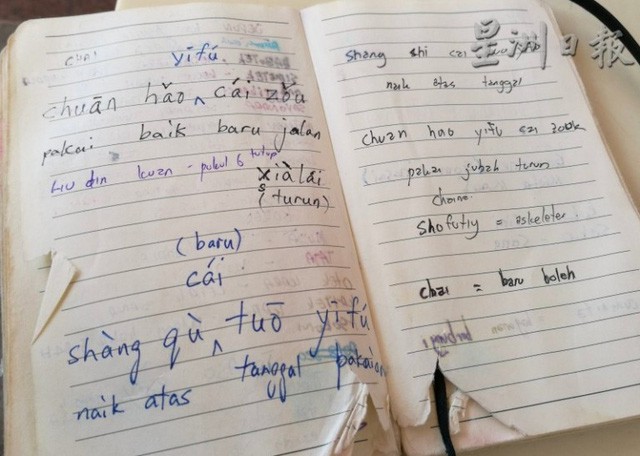 chai
yīfú.
chuān hǎo ^ cái zǒu
pakai baik baru jalan
Liu din kuan - pukul 6 tutup
xiàlái
(turun)
(baru)
cái
shàng qù ^ tuō yīfú
naik atas tanggal pakaian
星洲日報
Shang shi cai
naik atas tanggal
chuan hao yifu cai zook
pakai jubah turun
Shofutiy = eskeleter
chai = baru boleh